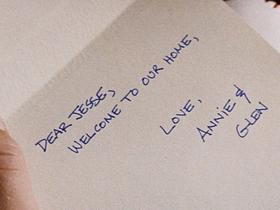 DEAR JESSE,
WELCOME TO OUR HOME,
LOVE,
ANNIE &
GLEN